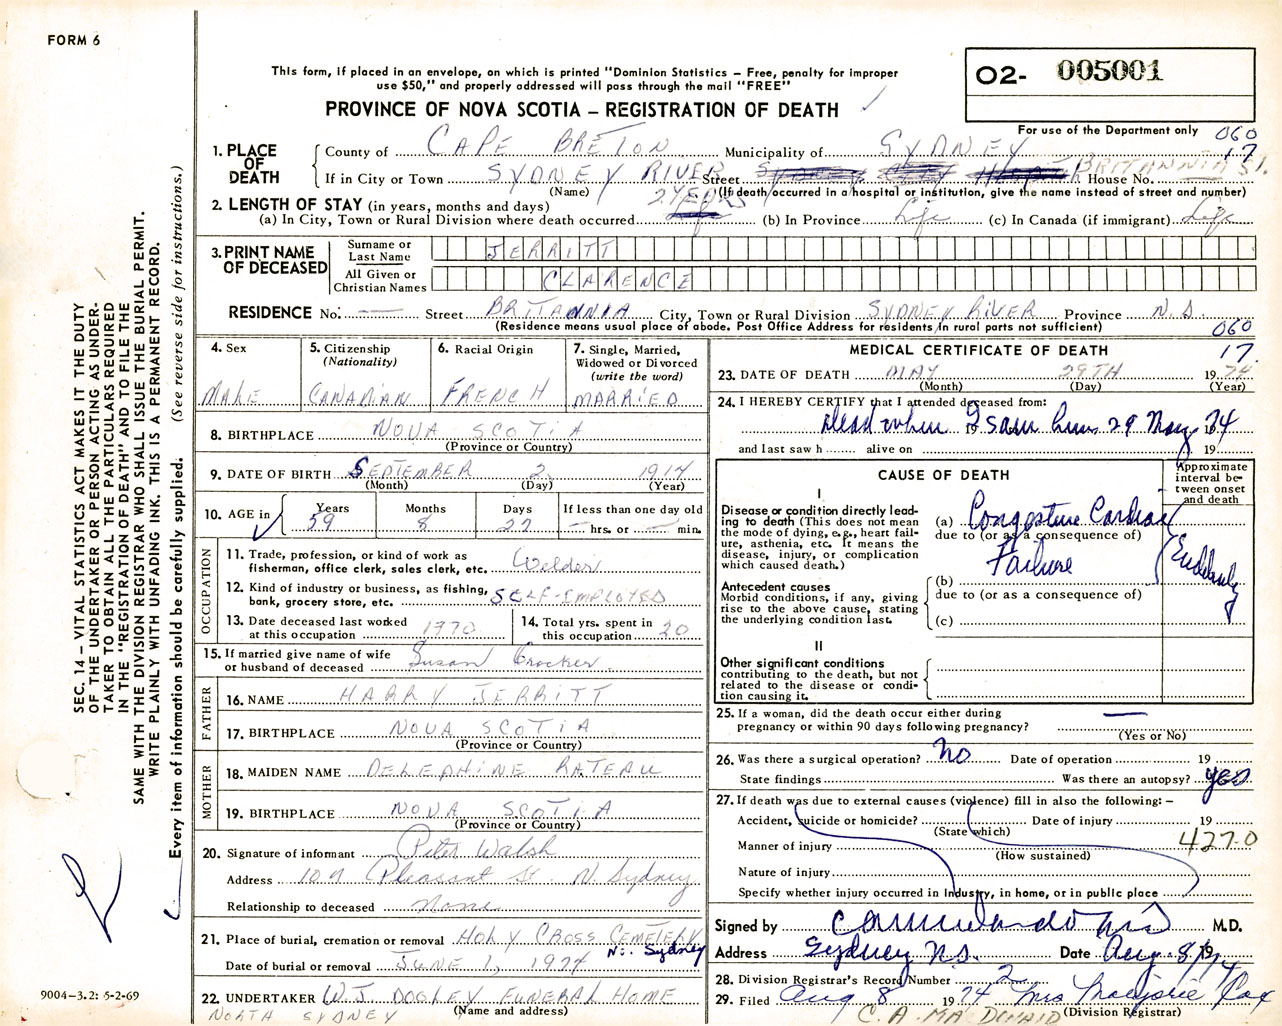 FORM 6
This form, if placed in an envelope, on which is printed "Dominion Statistics – Free, penalty for improper
use $50," and properly addressed will pass through the mail "FREE"
O2- 005001
PROVINCE OF NOVA SCOTIA – REGISTRATION OF DEATH
For use of the Department only 060
17
1. PLACE OF DEATH
County of CAPE BRETON Municipality of SYDNEY
If in City or Town SYDNEY RIVER Street House No. BRITANNIA ST.
(Name) (If death occurred in a hospital or institution, give the name instead of street and number)
2. LENGTH OF STAY (in years, months and days) 2 YEARS
(a) In City, Town or Rural Division where death occurred (b) In Province Life (c) In Canada (if immigrant) Life
3. PRINT NAME OF DECEASED
Surname or Last Name JERRITT
All Given or Christian Names CLARENCE
RESIDENCE No. — Street BRITANNIA City, Town or Rural Division SYDNEY RIVER Province N.S.
(Residence means usual place of abode. Post Office Address for residents in rural parts not sufficient) 060
17.
4. Sex
MALE
5. Citizenship
(Nationality)
CANADIAN
6. Racial Origin
FRENCH
7. Single, Married,
Widowed or Divorced
(write the word)
MARRIED
8. BIRTHPLACE NOVA SCOTIA
(Province or Country)
9. DATE OF BIRTH SEPTEMBER 2 1914
(Month) (Day) (Year)
10. AGE in Years Months Days If less than one day old
59 8 27 — hrs. or — min.
OCCUPATION
11. Trade, profession, or kind of work as
fisherman, office clerk, sales clerk, etc. Welder
12. Kind of industry or business, as fishing,
bank, grocery store, etc. SELF-EMPLOYED
13. Date deceased last worked
at this occupation 1970
14. Total yrs. spent in
this occupation 20
15. If married give name of wife
or husband of deceased Susan Crocker
FATHER
16. NAME HARRY JERRITT
17. BIRTHPLACE NOVA SCOTIA
(Province or Country)
MOTHER
18. MAIDEN NAME DELEPHINE RATEAU
19. BIRTHPLACE NOVA SCOTIA
(Province or Country)
20. Signature of informant Peter Walsh
Address 109 Pleasant St. N. Sydney
Relationship to deceased none
21. Place of burial, cremation or removal HOLY CROSS CEMETERY
No. Sydney
Date of burial or removal JUNE 1, 1974
22. UNDERTAKER W.J. DOOLEY FUNERAL HOME
(Name and address)
NORTH SYDNEY
MEDICAL CERTIFICATE OF DEATH
23. DATE OF DEATH MAY 29TH 1974
(Month) (Day) (Year)
24. I HEREBY CERTIFY that I attended deceased from:
Dead when I saw him 29 May 74
19 19
and last saw h alive on 19
CAUSE OF DEATH
Approximate
interval be-
tween onset
and death
I
Disease or condition directly lead-
ing to death (This does not mean
the mode of dying, e.g., heart fail-
ure, asthenia, etc. It means the
disease, injury, or complication
which caused death.)
(a) Congestive Cardiac
due to (or as a consequence of)
Failure
Suddenly
Antecedent causes
Morbid conditions, if any, giving
rise to the above cause, stating
the underlying condition last.
(b)
due to (or as a consequence of)
(c)
II
Other significant conditions
contributing to the death, but not
related to the disease or condi-
tion causing it.
25. If a woman, did the death occur either during
pregnancy or within 90 days following pregnancy? —
(Yes or No)
26. Was there a surgical operation? No Date of operation 19
State findings Was there an autopsy? yes
27. If death was due to external causes (violence) fill in also the following:–
Accident, suicide or homicide? Date of injury 19
(State which)
427.0
Manner of injury
(How sustained)
Nature of injury
Specify whether injury occurred in industry, in home, or in public place
Signed by M.D.
Address Sydney N.S. Date Aug. 8/74 19
28. Division Registrar's Record Number 2
29. Filed Aug 8 1974 Mrs Marjorie Cox
(Division Registrar)
C. A. MACDONALD
SEC. 14 – VITAL STATISTICS ACT MAKES IT THE DUTY
OF THE UNDERTAKER OR PERSON ACTING AS UNDER-
TAKER TO OBTAIN ALL THE PARTICULARS REQUIRED
IN THE "REGISTRATION OF DEATH" AND TO FILE THE
SAME WITH THE DIVISION REGISTRAR WHO SHALL ISSUE THE BURIAL PERMIT.
WRITE PLAINLY WITH UNFADING INK. THIS IS A PERMANENT RECORD.
Every item of information should be carefully supplied. (See reverse side for instructions.)
9004-3.2: 5-2-69